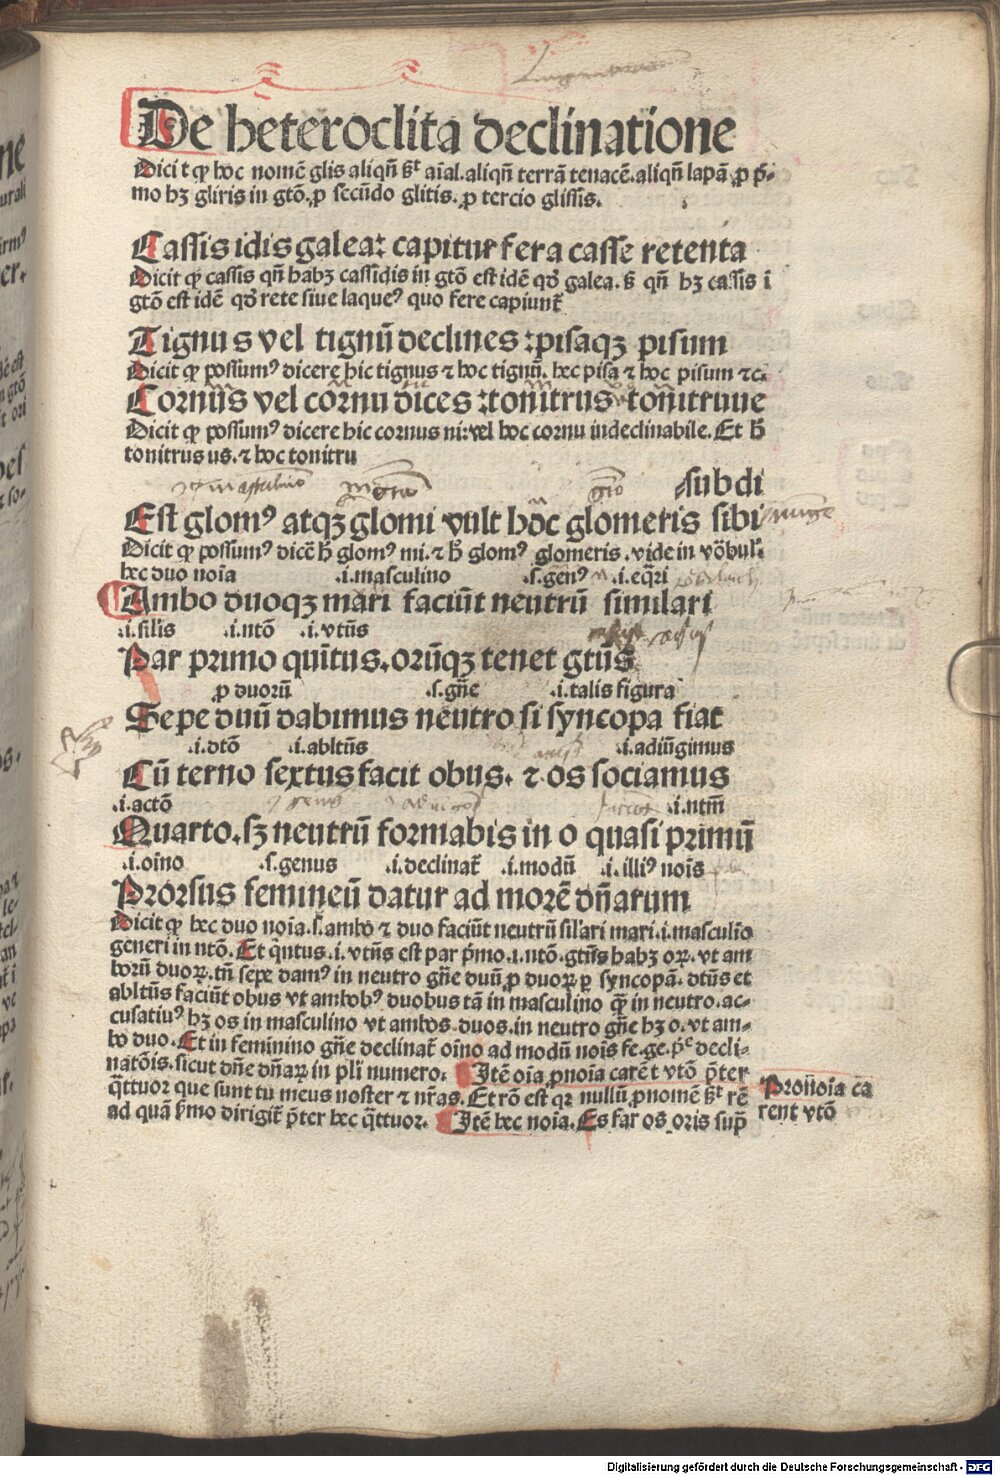 De heteroclita declinatione
Dicit ꝙ hoc nomē glis aliqñ ſꝫᵗ aīal.aliqñ terrā tenacē.aliqñ lapā ꝓ pͥ⸗
mo hꝫ gliris in gtō.ꝓ ſecūdo glitis. ꝓ tercio gliſſis.
Caſſis idis galea: capitur fera caſſe retenta
Dicit ꝙ caſſis qñ habꝫ caſſidis in gtō eſt idē qđ galea. ſꝫ qñ hꝫ caſſis ī
gtō eſt idē qđ rete ſiue laqueꝰ quo fere capiunt̄
Tignus vel tignū declines ⁊piſaqꝫ piſum
Dicit ꝙ poſſumꝰ dicere hic tignus ⁊ hoc tignū. hec piſa ⁊ hoc piſum ⁊c.
Cornus vel cornu dices ⁊tonitrus tonitruue
Dicit ꝙ poſſumꝰ dicere hic cornus ni:vel hoc cornu indeclinabile. Et ħ
tonitrus us.⁊ hoc tonitru
ſubdi
Eſt glomꝰ atqꝫ glomi vult hoc glomeris ſibi
Dicit ꝙ poſſumꝰ dicē ħ glomꝰ mi.⁊ ħ glomꝰ glomeris.vide in vōbul.
hec duo noīa .i.maſculino .ſ.genꝰ .i.eq̄ri
Ambo duoqꝫ mari faciūt neutrū ſimilari
.i.ſilis .i.ntō .i.vtūs
Par primo quītus.orūqꝫ tenet gtūs
ꝓ duorū .ſ.gn̄e .i.talis figura
Sepe duū dabimus neutro ſi ſyncopa fiat
.i.dtō .i.abltūs .i.adiūgimus
Cū terno ſextus facit obus. ⁊ os ſociamus
.i.actō .i.ntm̄
Quarto.ſꝫ neutrū formabis in o quaſi primū
.i.oīno .ſ.genus .i.declinat̄ .i.modū .i.illiꝰ noīs
Prorſus femineū datur ad morē dn̄arum
Dicit ꝙ hec duo noīa.ſ.ambo ⁊ duo faciūt neutrū ſilari mari.i.maſculīo
generi in ntō.Et qͥntus.i.vtūs eſt par pͥmo.i.ntō.gtūs habꝫ oꝝ.vt am
boꝝ duoꝝ.tn̄ ſepe damꝰ in neutro gn̄e duū ꝓ duoꝝ ꝑ ſyncopā.dtūs et
abltūs faciūt obus vt ambobꝰ duobus tā in maſculino qͣ̄ in neutro.ac⸗
cuſatiuꝰ hꝫ os in maſculino vt ambos.duos.in neutro gn̄e hꝫ o.vt am⸗
bo duo.Et in feminino gn̄e declinat̄ oīno ad modū noīs fe.ge.pͥᵉ decli⸗
natōis.ſicut dn̄e dn̄aꝝ in pli numero. Itē oīa ꝓnoīa carēt vtō p̄ter
qͣttuor que ſunt tu meus noſter ⁊ nr̄as.Et rō eſt qꝛ nullū ꝓnomē ſꝫᵗ rē
ad quā ſͥmo dirigit̄ p̄ter hec qͣttuor. Itē hec noīa.Es far os oris ſupͣ
Pronoīa ca
rent vtō
Digitalisierung gefördert durch die Deutsche Forschungsgemeinschaft - DFG